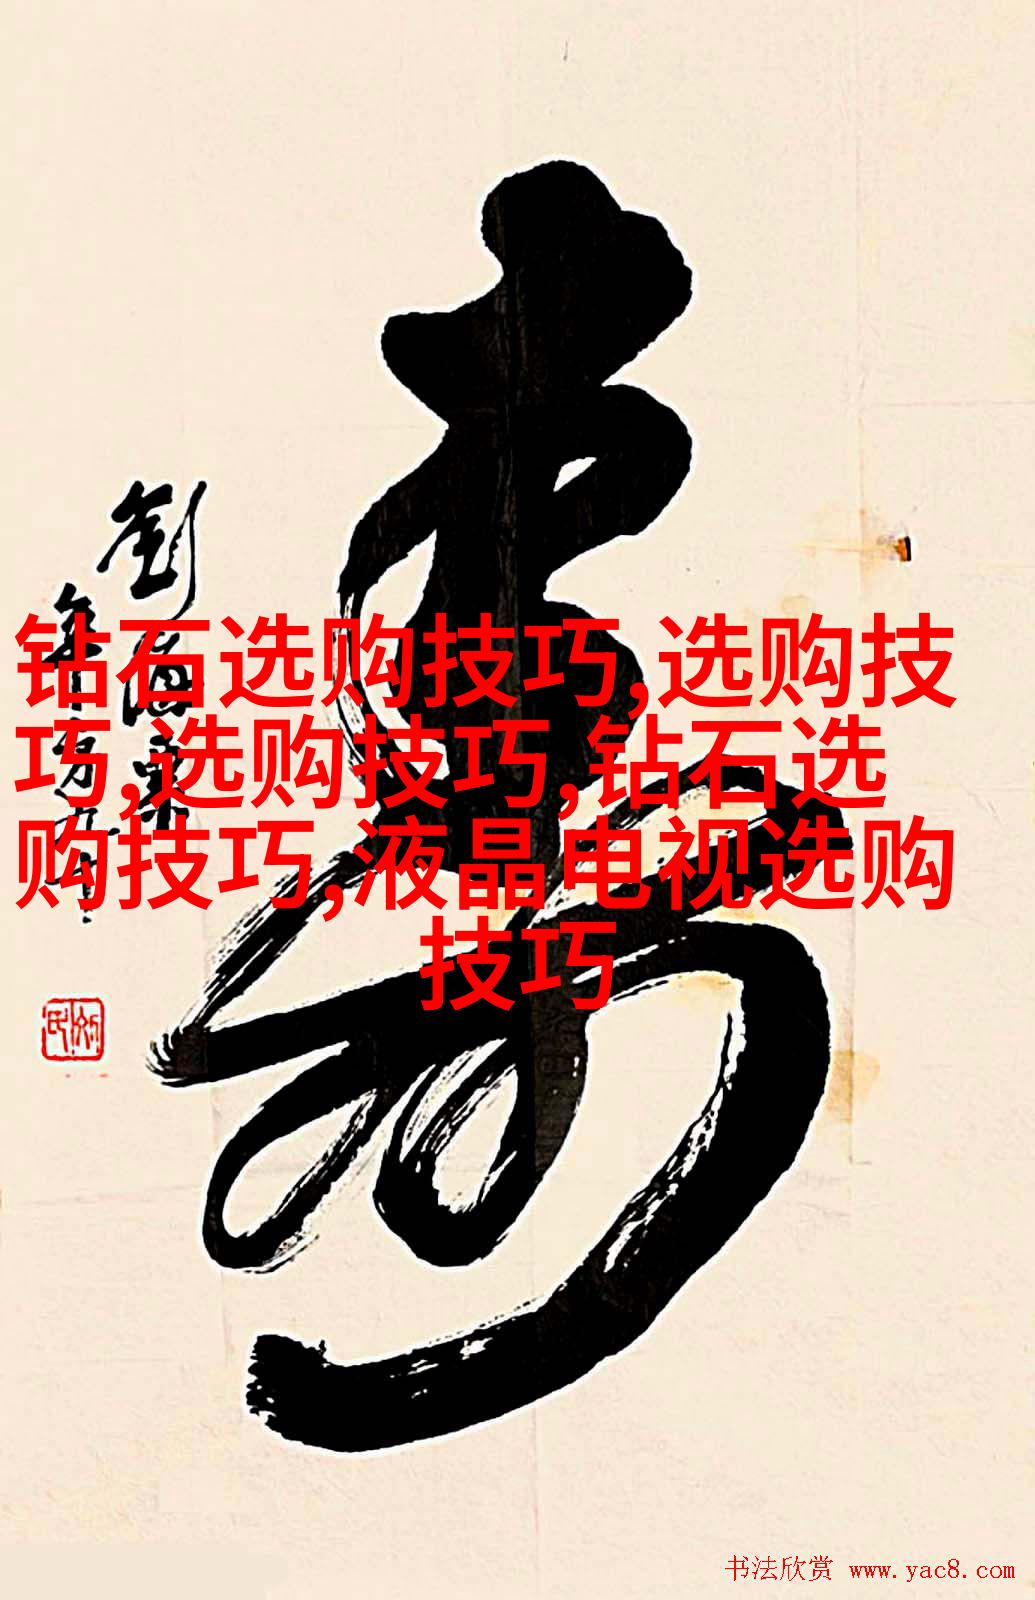 寿
劉海粟
年方九十
钻石选购技巧,选购技
巧,选购技巧,钻石选
购技巧,液晶电视选购
技巧
书法欣赏 www.yac8.com